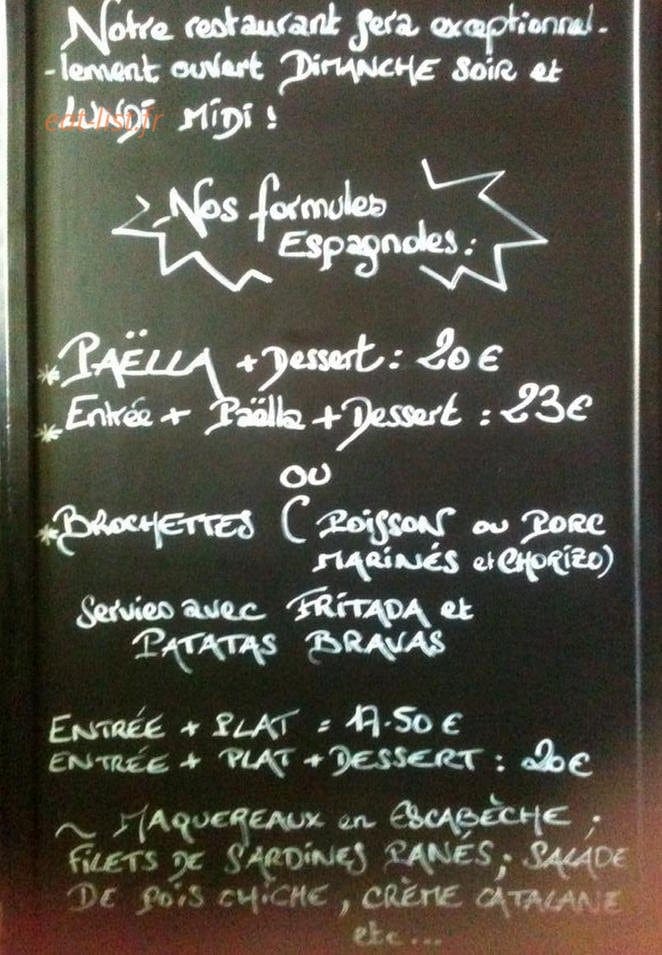 Notre restaurant sera exceptionnel-
-lement ouvert DIMANCHE SOIR et
LUNDI MIDI !
eat-list.fr
Nos formules
Espagnoles :
* PAËLLA + Dessert : 20 €
* Entrée + Paëlla + Dessert : 23€
OU
* BROCHETTES ( POISSON ou PORC
MARINÉS et CHORIZO)
Servies avec FRITADA et
PATATAS BRAVAS
ENTRÉE + PLAT = 17.50 €
ENTRÉE + PLAT + DESSERT : 20€
~ MAQUEREAUX en ESCABÈCHE ;
FILETS DE SARDINES PANÉS ; SALADE
DE POIS CHICHE , CRÈME CATALANE
etc...